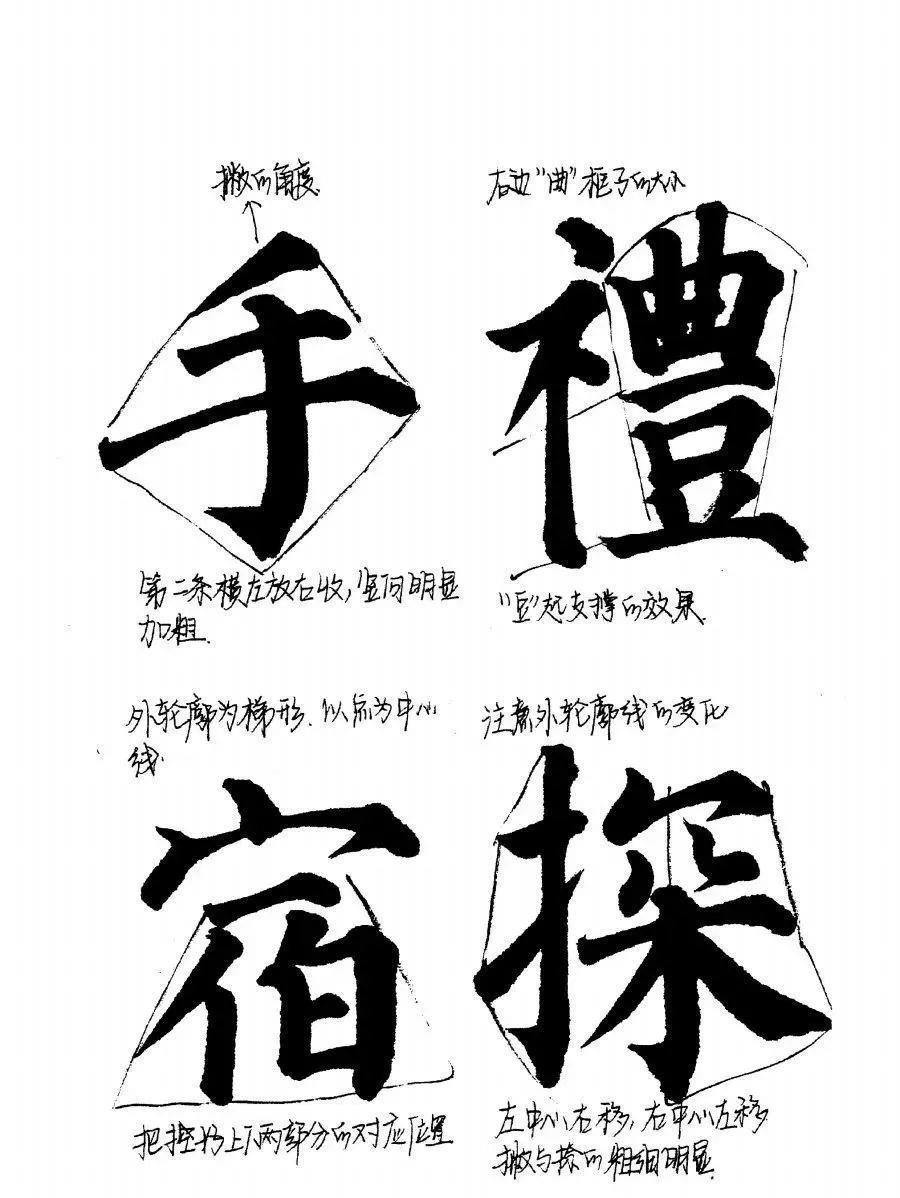 撇的角度
手
第二条横左放右收,竖向明显
加粗.
右边“曲”框子的大小
禮
“豆”起支撑的效果.
外轮廓为梯形.以点为中心
线.
宿
把控好上下两部分的对应位置
注意外轮廓线的变化
探
左中心右移,右中心左移
撇与捺的粗细明显.